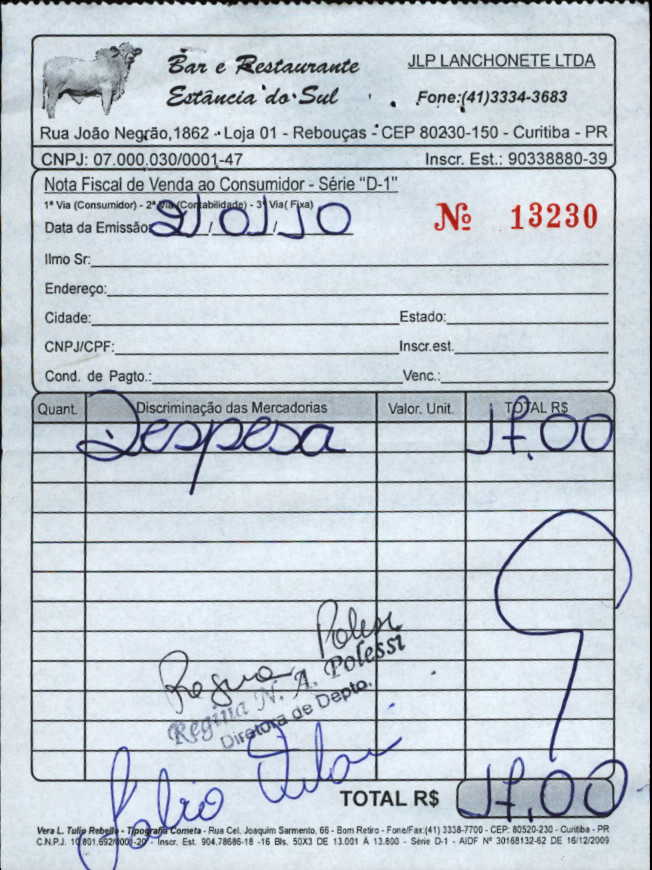 Bar e Restaurante
Estância do Sul
JLP LANCHONETE LTDA
Fone:(41)3334-3683
Rua João Negrão,1862 - Loja 01 - Rebouças - CEP 80230-150 - Curitiba - PR
CNPJ: 07.000.030/0001-47 Inscr. Est.: 90338880-39
Nota Fiscal de Venda ao Consumidor - Série "D-1"
1ª Via (Consumidor) - 2ª Via (Contabilidade) - 3ª Via( Fixa)
Nº 13230
Data da Emissão: / 01 / 10
Ilmo Sr:
Endereço:
Cidade: Estado:
CNPJ/CPF: Inscr.est.
Cond. de Pagto.: Venc.:
Quant. Discriminação das Mercadorias Valor. Unit. TOTAL R$
Despesa 17,00
Regina Polessi
Regina N. A. Polessi
Diretora de Depto.
TOTAL R$ 17,00
Vera L. Tulip Rebello - Tipografia Cometa - Rua Cel. Joaquim Sarmento, 66 - Bom Retiro - Fone/Fax:(41) 3338-7700 - CEP: 80520-230 - Curitiba - PR
C.N.P.J. 10.801.692/0001-20 - Inscr. Est. 904.78686-18 -16 Bls. 50X3 DE 13.001 À 13.800 - Série D-1 - AIDF Nº 30168132-62 DE 16/12/2009